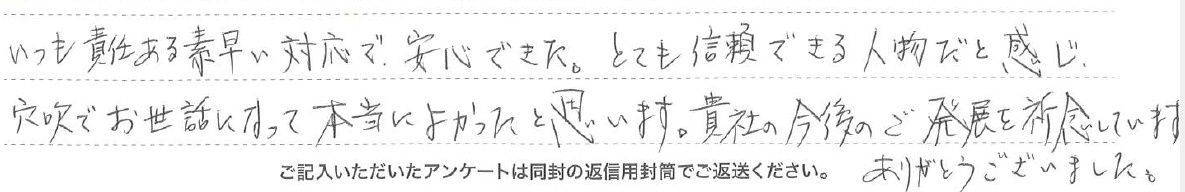 いつも責任ある素早い対応で、安心できた。とても信頼できる人物だと感じ、
穴吹でお世話になって本当によかったと思います。貴社の今後のご発展を祈念しています
ご記入いただいたアンケートは同封の返信用封筒でご返送ください。 ありがとうございました。